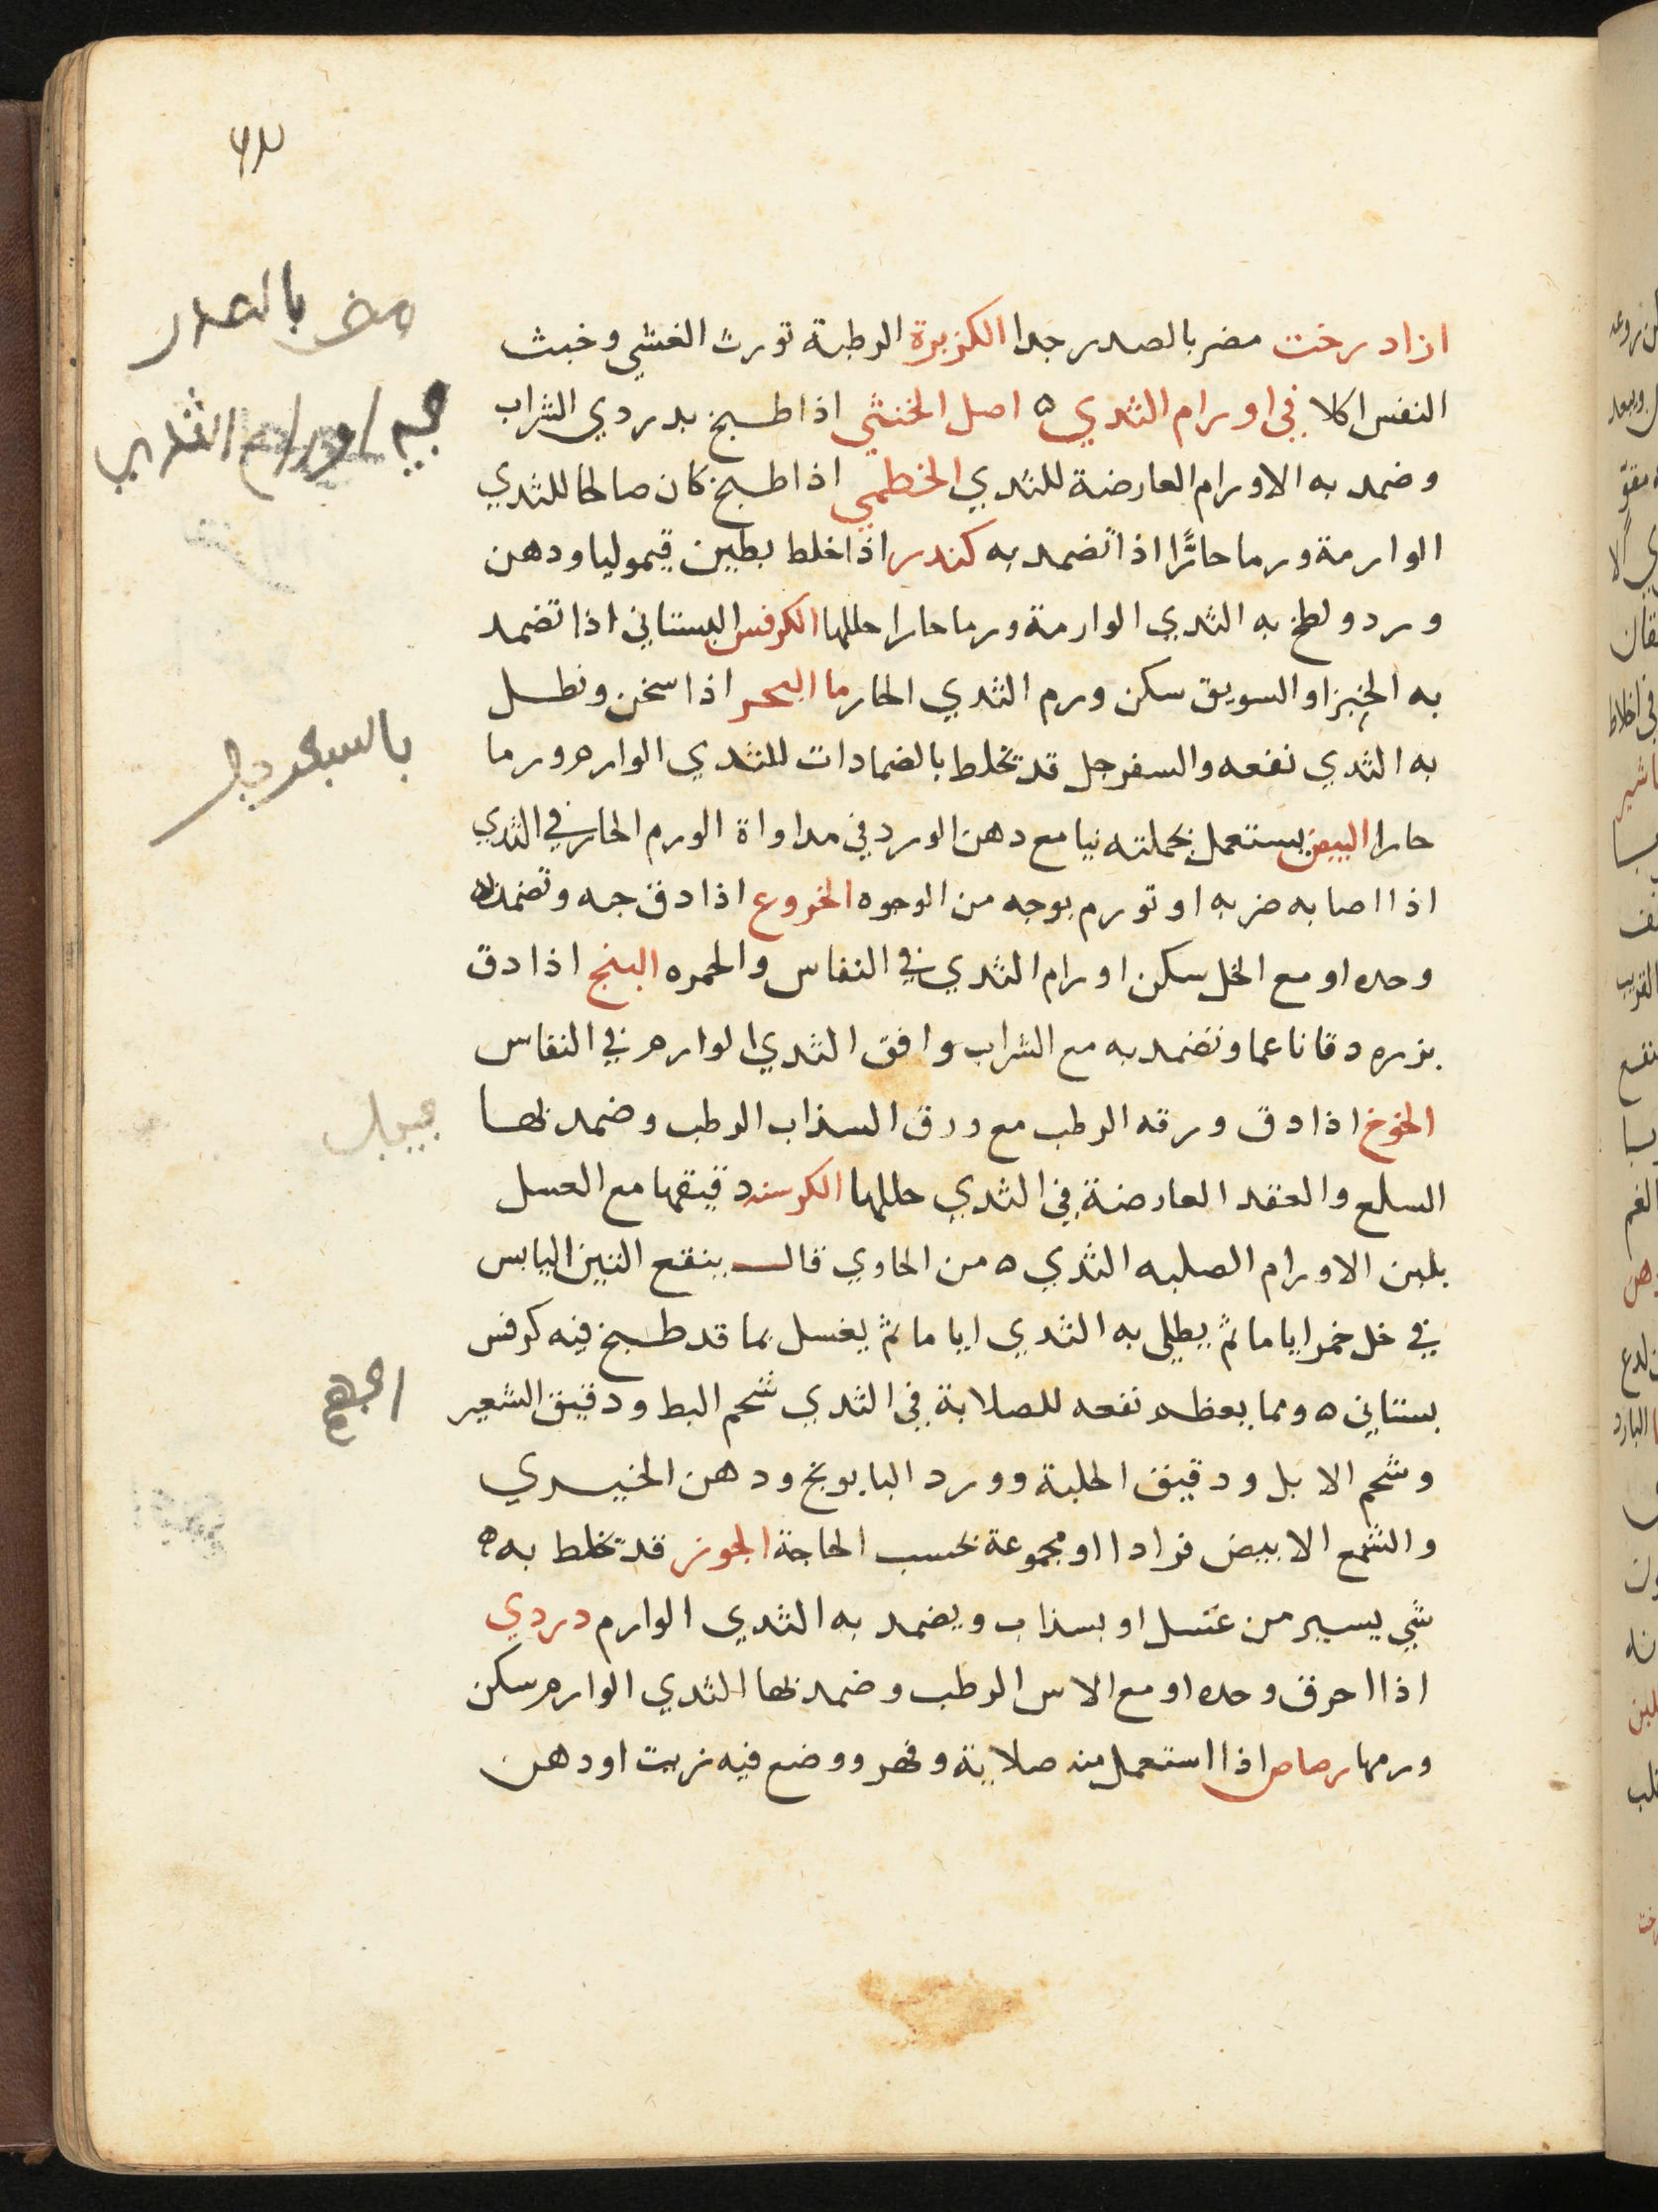 ازاد رخت مضر بالصدر جدا الكزبرة الرطبة تورث الغشي وخبث
النفس اكلا في اورام الثدي ه اصل الخنثي اذا طبخ بدردي الشراب
وضمد به الاورام العارضة للثدي الخطمي اذا طبخ كان صالحا للثدي
الوارمة ورما حارًّا اذا تضمد به كندر اذا خلط بطين قيموليا ودهن
ورد ولطخ به الثدي الوارمة ورما حارا حللها الكرفس البستاني اذا تضمد
به الخبز او السويق سكن ورم الثدي الحار ما البحر اذا سخن ونطل
به الثدي نفعه والسفرجل قد يخلط بالضمادات للثدي الوارم ورما
حارا البيض يستعمل بجملته نيا مع دهن الورد في مداواة الورم الحار في الثدي
اذا اصابه ضربه او تورم بوجه من الوجوه الخروع اذا دق حبه وتضمد به
وحده او مع الخل سكن اورام الثدي في النفاس والحمره البنج اذا دق
بزره دقا ناعما وتضمد به مع الشراب وافق الثدي الوارم في النفاس
الخوخ اذا دق ورقه الرطب مع ورق السذاب الرطب وضمد بها
السلع والعقد العارضة في الثدي حللها الكرسنه دقيقها مع العسل
يلين الاورام الصلبه الثدي ه من الحاوي قال ينقع التين اليابس
في خل خمر اياما ثم يطلى به الثدي اياما ثم يغسل بما قد طبخ فيه كرفس
بستاني ه ومما يعظم نفعه للصلابة في الثدي شحم البط ودقيق الشعير
وشحم الابل ودقيق الحلبة وورد البابونج ودهن الخيري
والشمع الابيض فرادا او مجموعة بحسب الحاجة الجوز قد يخلط به ه
شي يسير من عسل او بسذاب ويضمد به الثدي الوارم دردي
اذا احرق وحده او مع الاس الرطب وضمد بها الثدي الوارم سكن
ورمها رصاص اذا استعمل منه صلاية وفهر ووضع فيه زيت او دهن
مضر بالصدر
اورام الثدي